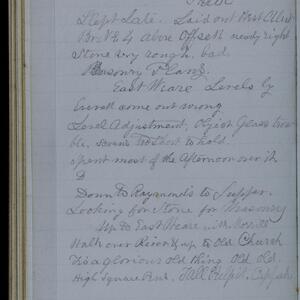 Slept Late. Laid out West Abut
Br. No 4 above Offsets nearly right
Stone very rough, bad.
Masonry Plans.
East Weare Levels by
Everett come out wrong
Level Adjustment, Object Glass trou
ble, screws to hold
spent most of the Afternoon over it
Down to Raymonds to Supper.
Looking for Stone for Masonry
Up to East Weare with Morrill
Walk over River & up to Old Church
Tis a glorious old thing Old Old.
High Square Pews, Tall Pulpit,